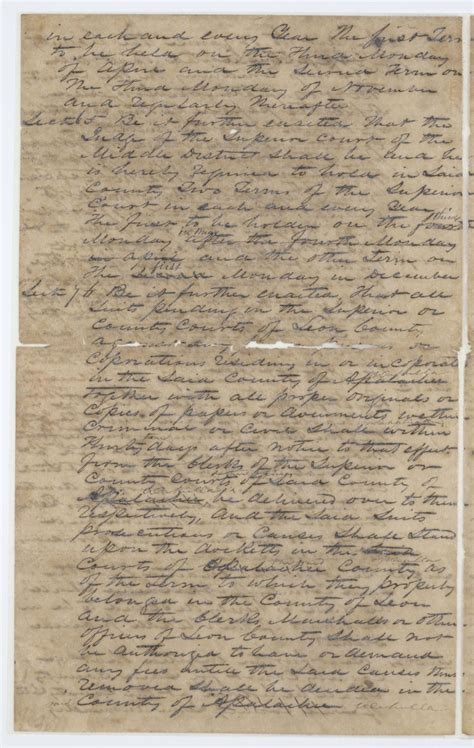 in each and every Year the first Term
to be held on the third Monday
of April and the Second Term on
the third Monday of November
and regularly thereafter
Sect 5 Be it further enacted that the
Judge of the Superior Court of the
Middle District Shall be and he
is hereby required to hold in Said
County Two Terms of the Superior
Court in each and every Year,
the first to be holden on the
Monday after the fourth Monday
in and the other Term on
first
the Monday in December
Sect 6 Be it further enacted, that all
Suits pending in the Superior or
County Courts of Leon County
against any or
Corporations residing in or
in the Said County of Apalachie
together with all proper originals or
Copies of papers or documents whether
Criminal or Civil Shall within
thirty days after notice to that effect
from the Clerks of the Superior or
County Courts of Said County of
be delivered over to them
respectively, and the Said Suits
prosecutions or Causes Shall Stand
upon the docketts in the
Courts of County, as
of the Term to which they properly
belonged in the County of Leon
and the Clerks, Marshalls or other
officers of Leon County Shall not
be authorized to have or demand
any fees untill the Said Causes thus
removed Shall be decided in the
County of Apalachie